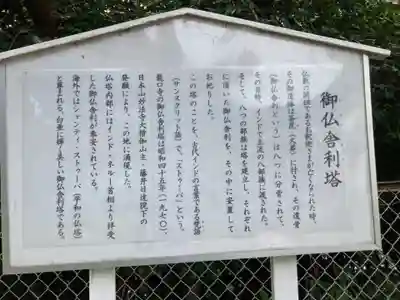 御仏舎利塔
仏教の開祖であるお釈迦さまが亡くなられた時、
その御遺体は荼毘（火葬）に付され、その遺骨
（御仏舎利という）は八つに分骨されて、
その当時、インドで主流の八部族に渡された。
そして、八つの部族は塔を建立し、それぞれ
に頂いた御仏舎利を、その中に安置して
お祀りした。
この塔のことを、古代インドの言葉である梵語
（サンスクリット語）で、「ストゥーパ」という。
龍口寺の御仏舎利塔は昭和四十五年（一九七〇）、
日本山妙法寺大僧伽山主・藤井日達猊下の
発願により、この地に涌現した。
仏塔内部にはインド・ネルー首相より拝受
した御仏舎利が奉安されている。
海外ではシャンティ・ストゥーパ（平和の仏塔）
と尊まれる、白亜に輝く美しい御仏舎利塔である。